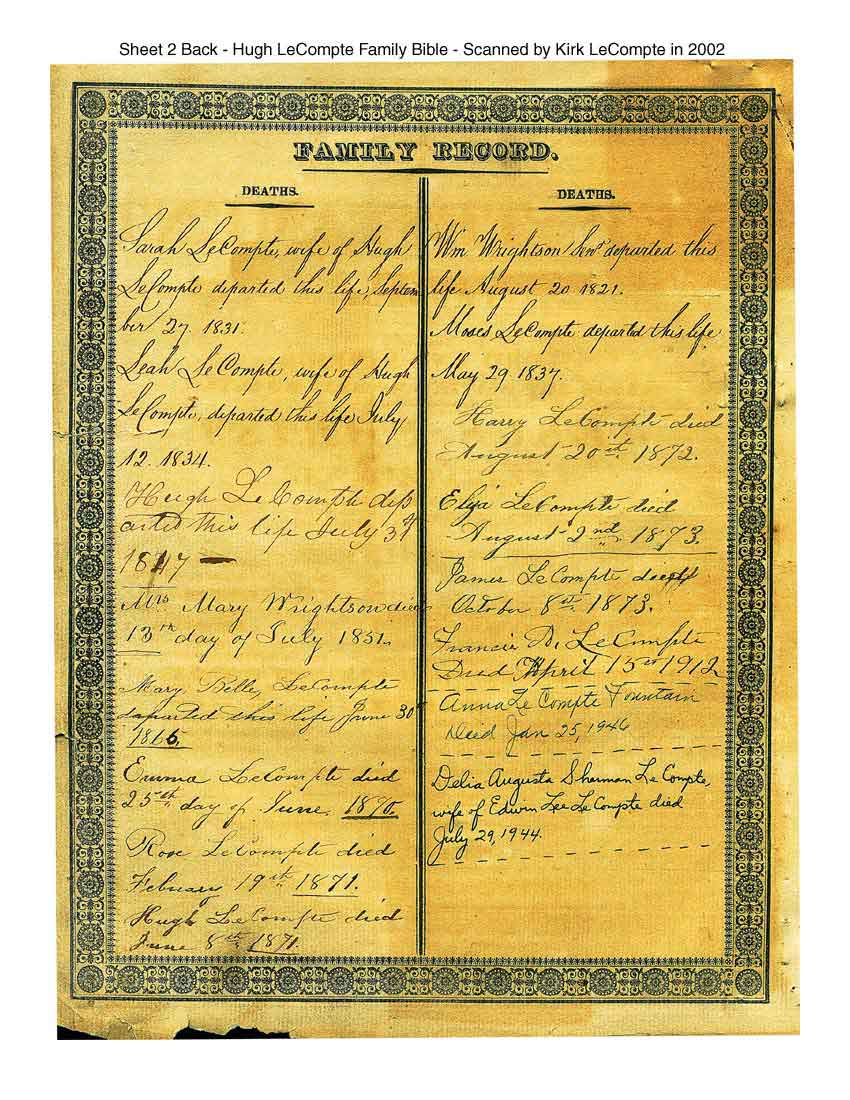 Sheet 2 Back - Hugh LeCompte Family Bible - Scanned by Kirk LeCompte in 2002
FAMILY RECORD.
DEATHS.
Sarah LeCompte, wife of Hugh
LeCompte departed this life, Septem
ber 27. 1831.
Leah LeCompte, wife of Hugh
LeCompte, departed this life July
12. 1834.
Hugh LeCompte dep
arted this life July 3d
Mrs Mary Wrightson died
13th day of July 1851.
Mary Belle, LeCompte
departed this life June 30
Emma LeCompte died
25th day of June.
Rose LeCompte died
Febuary 19th 1871.
Hugh LeCompte died
June 8th 1871.
DEATHS.
Wm Wrightson Senr departed this
life August 20 1821.
Moses LeCompte departed this life
May 29 1837.
Harry LeCompte died
August 20st 1872.
Elija LeCompte died
August 2nd 1873.
James LeCompte died
October 8th 1873.
Francis D. LeCompte
Died April 15th 1912
Anna Le Compte Fountain
Died Jan 25, 1946
Delia Augusta Sharman Le Compte,
wife of Edwin Lee Le Compte died
July 29, 1944.